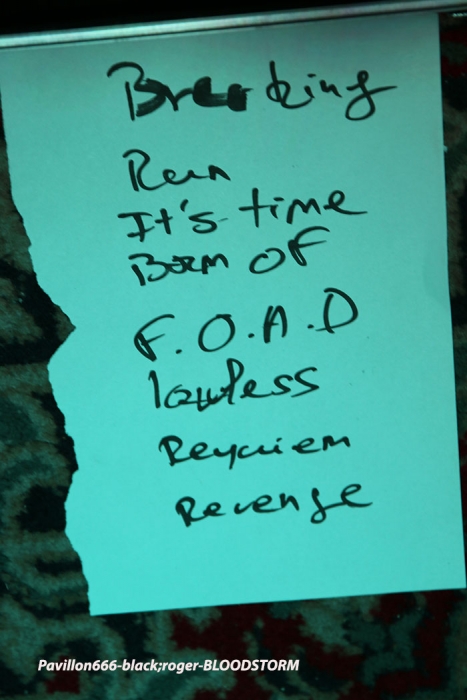 Breaking
Run
It's time
Born of
F.O.A.D
lawless
Requiem
Revenge
Pavillon666-black;roger-BLOODSTORM